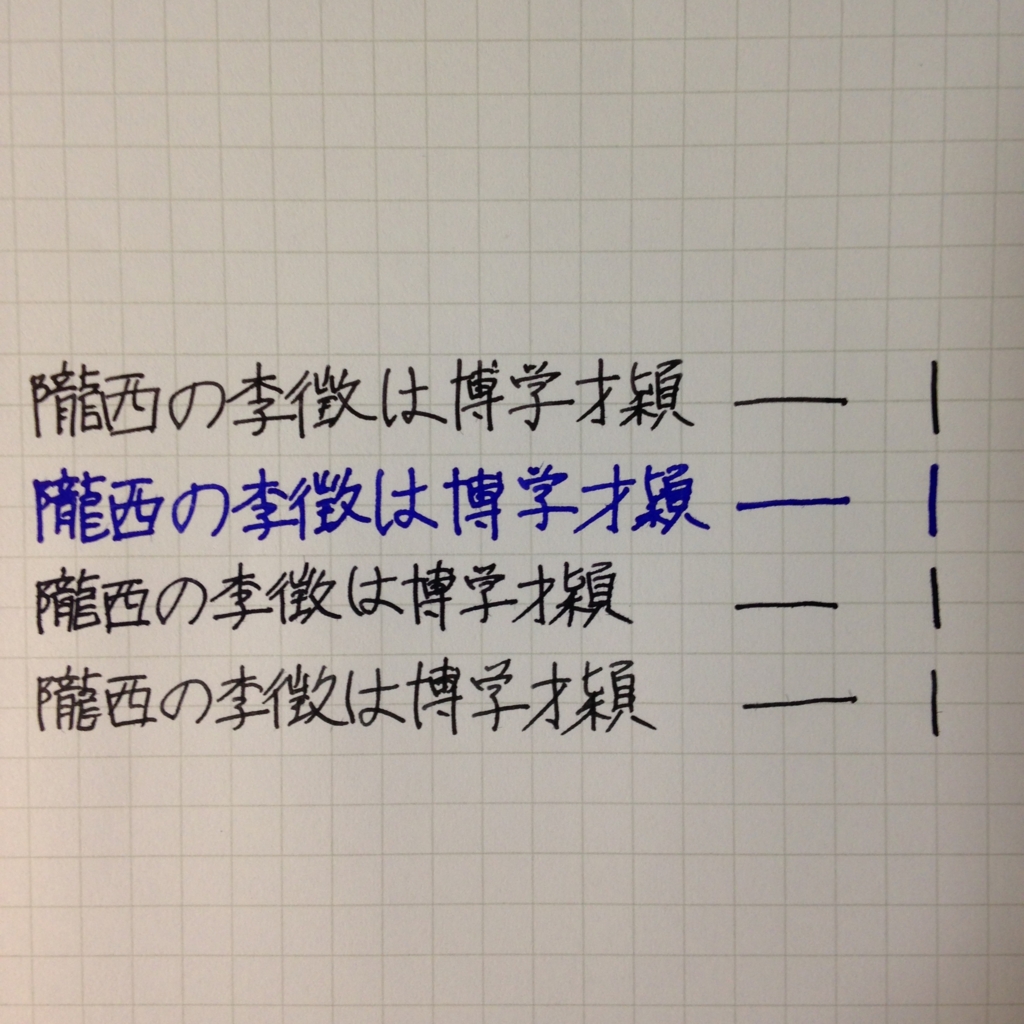 隴西の李徴は博学才穎 — |
隴西の李徴は博学才穎 — |
隴西の李徴は博学才穎 — |
隴西の李徴は博学才穎 — |